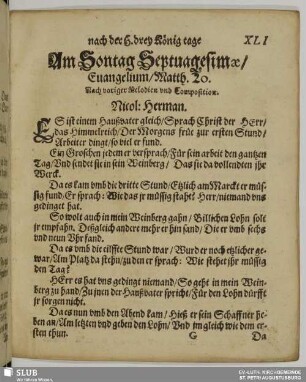 nach der H. drey König tage XLI
Am Sontag Septuagesimæ/
Euangelium/ Matth. 20.
Nach voriger Melodien vnd Composition.
Nicol: Herman.
ES ist einem Haußvater gleich/ Sprach Christ der HErr/
das Himmelreich/ Der Morgens früe zur ersten Stund/
Arbeiter dingt/ so viel er fund.
Ein Groschen jedem er versprach/ Für sein arbeit den gantzen
Tag/ Vnd sendet sie in sein Weinberg/ Das sie da vollendten ihr
Werck.
Da es kam vmb die dritte Stund/ Etzlich am Marckt er müs-
sig fund/ Er sprach: Wie das jr müssig staht? Herr/ niemand vns
gedinget hat.
So wolt auch in mein Weinberg gahn/ Billichen Lohn solt
jr empfahn. Deßgleich andere mehr er hin sand/ Die er vmb sechs
vnd neun Vhr fand.
Da es vmb die eilffte Stund war/ Wurd er noch etzlicher ge-
war/ Am Platz da stehn/ zu den er sprach: Wie stehet jhr müssig
den Tag?
HErr es hat vns gedinget niemand/ So geht in mein Wein-
berg zu hand/ Zu jnen der Haußvater sprich/ Für den Lohn dürfft
jr sorgen nicht.
Da es nun vmb den Abend kam/ Hieß er sein Schaffner he-
ben an/ Am letzten vnd geben den Lohn/ Vnd jm gleich wie dem er-
sten thun.
G Da
SLUB
Wir führen Wissen.
EV.-LUTH. KIRCHGEMEINDE
ST. PETRI AUGUSTUSBURG